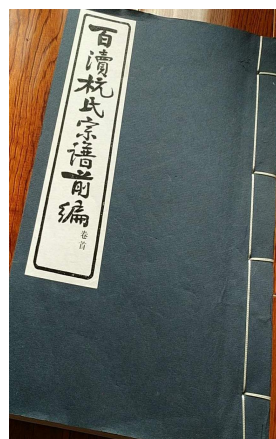 百渎杭氏宗谱前编
卷首